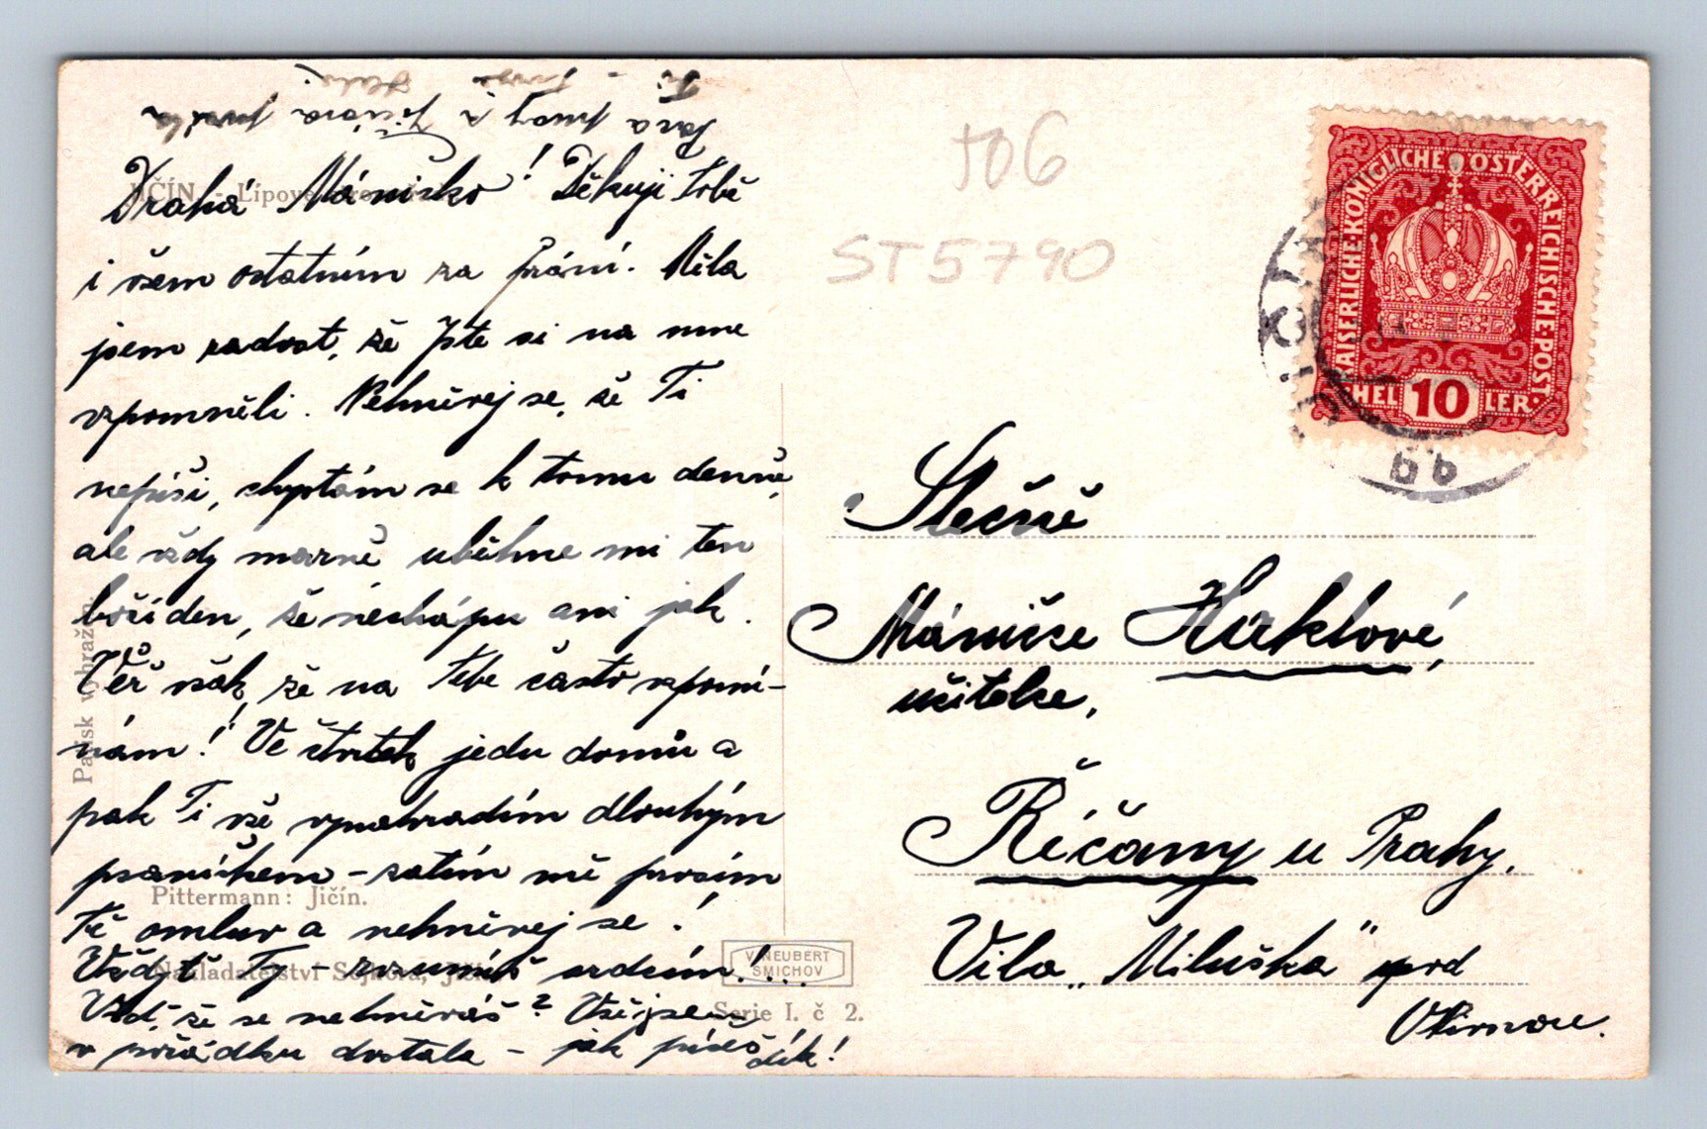 Drahá Máničko! Děkuji Tobě
i všem ostatním za přání. Měla
jsem radost, že Jste si na mne
vzpomněli. Nehněvej se, že Ti
nepíši, chystám se k tomu denně,
ale vždy marně uběhne mi ten
boží den, že nechápu ani jak.
Věř však, že na Tebe často vzpomí-
nám! Ve čtvrtek jedu domů a
pak Ti vše vynahradím dlouhým
psaníčkem – zatím mě prosím
Tě omluv a nehněvej se!
Vždyť Ty – rozumíš srdcím!...
Viď, že se nehněváš? Vše jsem
v pořádku dostala – jak píšeš dík!
JIČÍN. - Lípové
Patisk vyhražen.
Pittermann: Jičín.
Nakladatelství
V. NEUBERT
SMÍCHOV
Serie I. č 2.
706
ST5790
KAISERLICHE·KÖNIGLICHE ÖSTERREICHISCHE·POST·
HEL 10 LER·
JIČÍN
6b
Slečně
Mánince Haklové,
učitelce,
Říčany u Prahy,
Vila „Miluška" pod